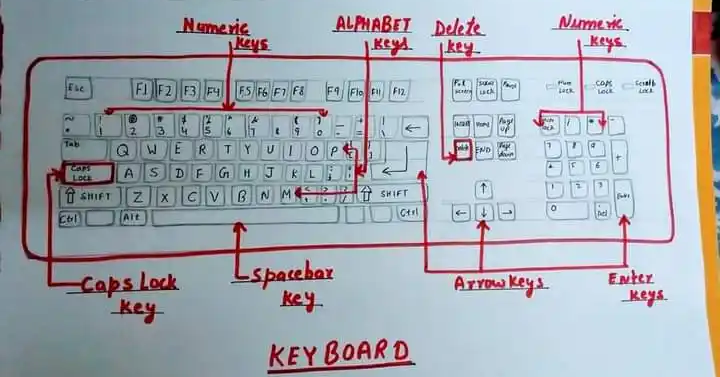 Numeric keys
ALPHABET keys
Delete key
Numeric keys
Esc F1 F2 F3 F4 F5 F6 F7 F8 F9 F10 F11 F12
Scroll Lock Pause
Num Lock CAPS LOCK Scroll Lock
Home Page up
Tab Q W E R T Y U I O P
END Page down
7 8 9 +
Caps Lock A S D F G H J K L
4 5 6
SHIFT Z X C V B N M SHIFT
1 2 3 Enter
Ctrl Alt Ctrl
0 Del
Caps Lock key
Spacebar key
Arrow keys
Enter keys
KEYBOARD